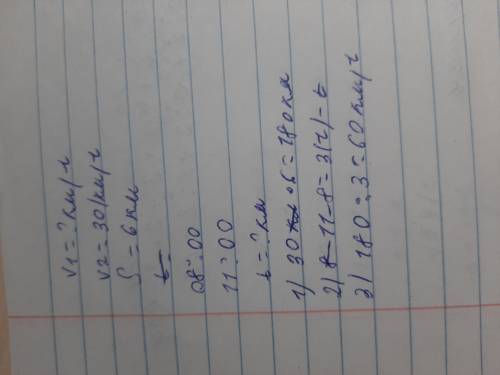 V1=? км/ч
V2=30 км/ч
S=6 км
t
08:00
11:00
t=? км
1) 30 км · 6=180 км
2) 8 11-8=3(ч)-t
3) 180:3=60 км/ч